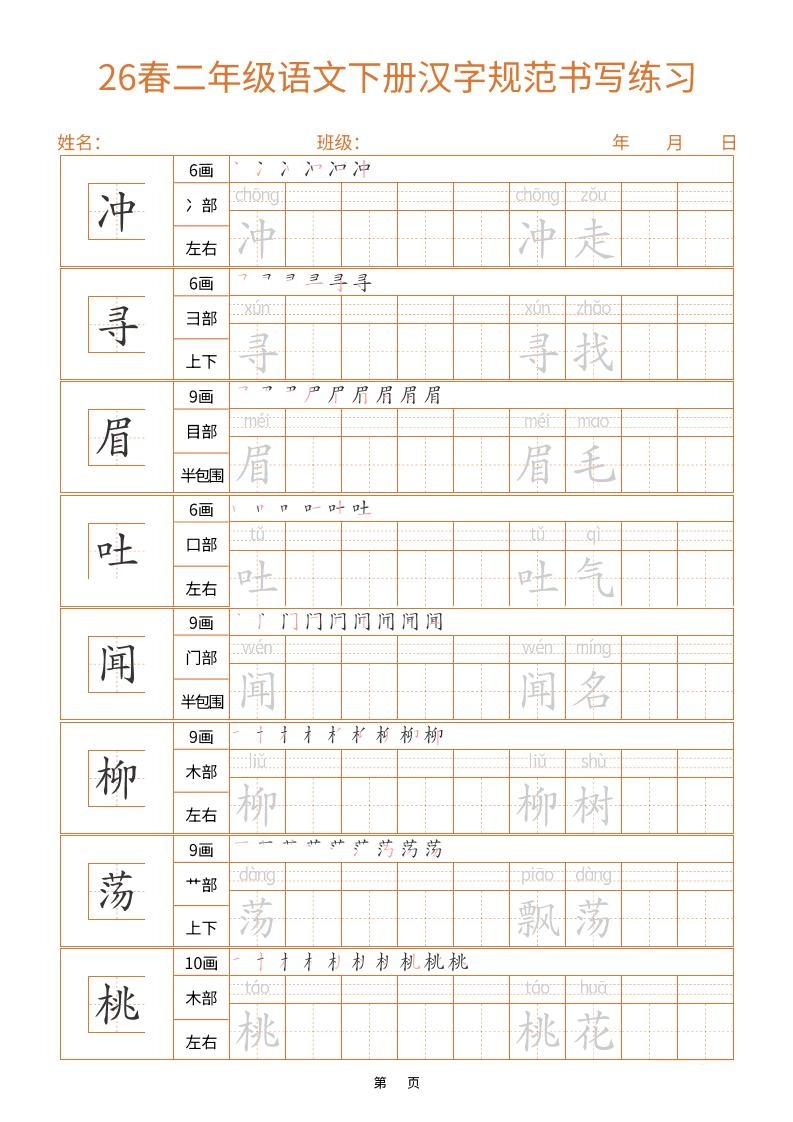 26春二年级语文下册汉字规范书写练习
姓名： 班级： 年 月 日
冲 6画
冫部 chōng chōng zǒu
左右 冲 冲 走
寻 6画
彐部 xún xún zhǎo
上下 寻 寻 找
眉 9画
目部 méi méi mao
半包围 眉 眉 毛
吐 6画
口部 tǔ tǔ qì
左右 吐 吐 气
闻 9画
门部 wén wén míng
半包围 闻 闻 名
柳 9画
木部 liǔ liǔ shù
左右 柳 柳 树
荡 9画
艹部 dàng piāo dàng
上下 荡 飘 荡
桃 10画
木部 táo táo huā
左右 桃 桃 花
第 页